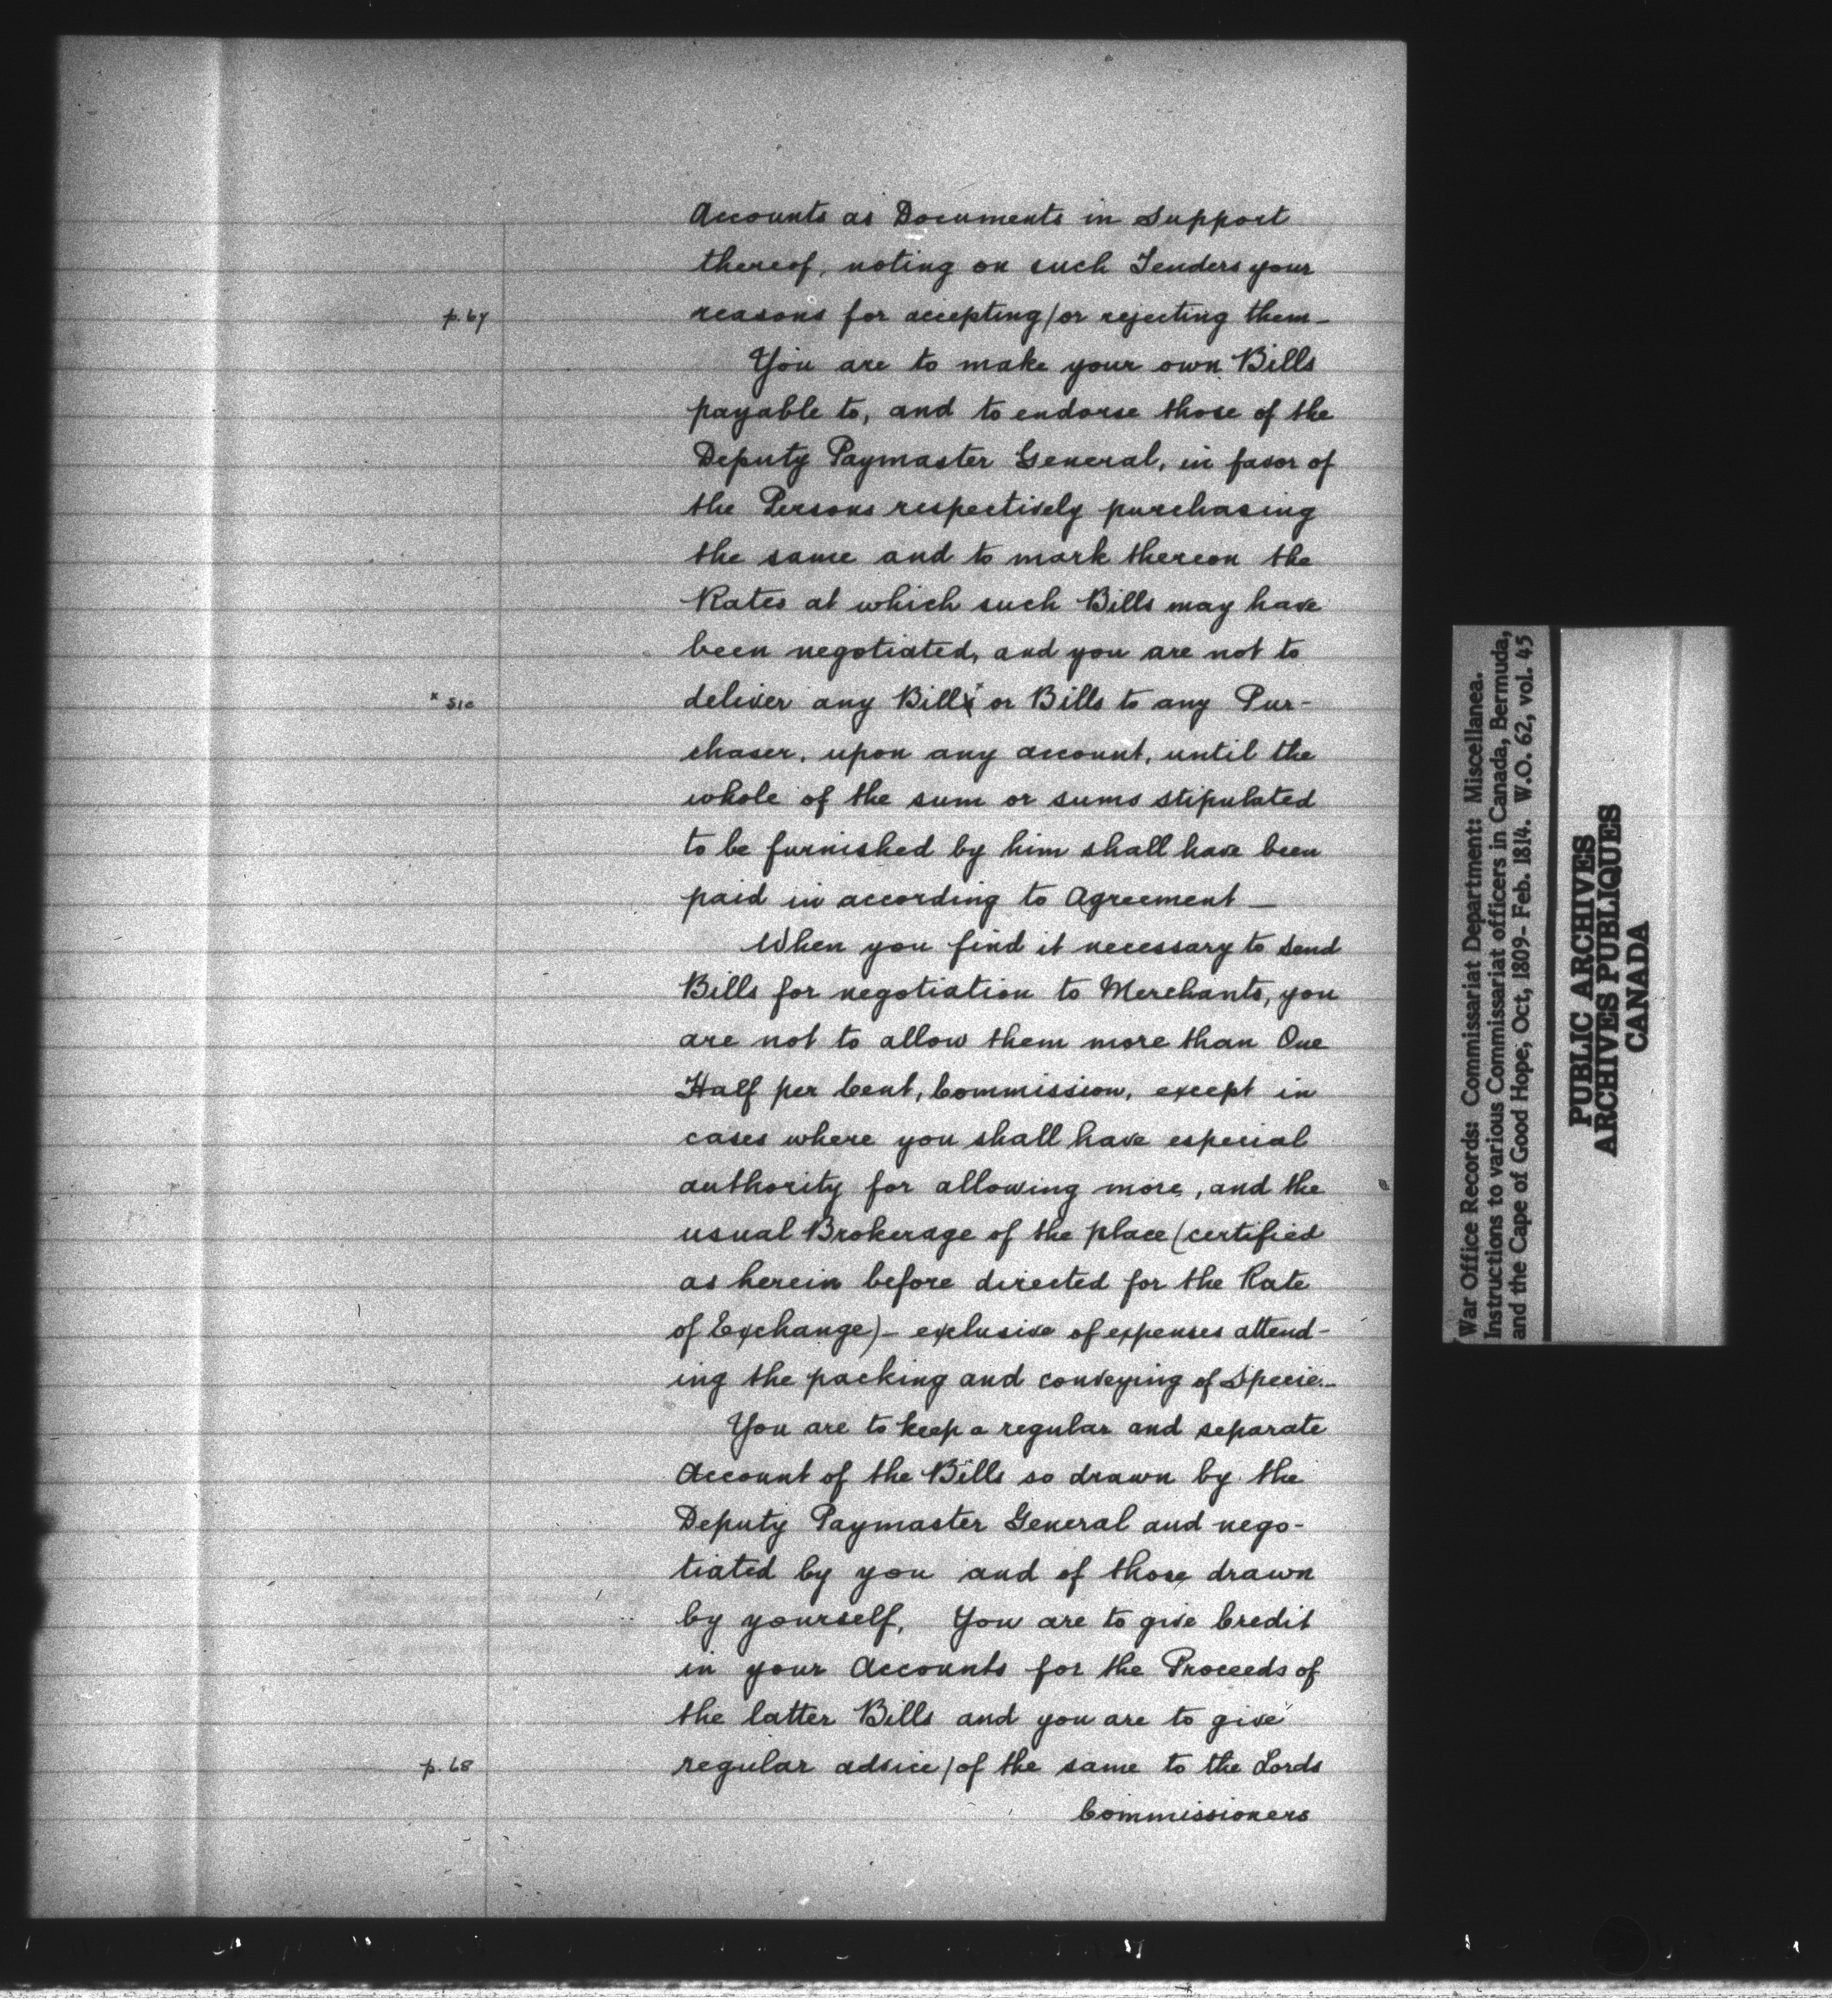 Accounts as Documents in Support
thereof, noting on such Tenders your
p. 67 reasons for accepting/or rejecting them—
You are to make your own Bills
payable to, and to endorse those of the
Deputy Paymaster General, in favor of
the Persons respectively purchasing
the same and to mark thereon the
Rates at which such Bills may have
been negotiated, and you are not to
x sic deliver any Bills x or Bills to any Pur-
chaser, upon any account, until the
whole of the sum or sums stipulated
to be furnished by him shall have been
paid in according to Agreement—
When you find it necessary to send
Bills for negotiation to Merchants, you
are not to allow them more than One
Half per Cent, Commission, except in
cases where you shall have especial
authority for allowing more, and the
usual Brokerage of the place (certified
as herein before directed for the Rate
of Exchange)— exclusive of expenses attend-
ing the packing and conveying of Specie—
You are to keep a regular and separate
Account of the Bills so drawn by the
Deputy Paymaster General and nego-
tiated by you and of those drawn
by yourself, You are to give Credit
in your Accounts for the Proceeds of
the latter Bills and you are to give
p. 68 regular advice/of the same to the Lords
Commissioners
War Office Records: Commissariat Department: Miscellanea.
Instructions to various Commissariat officers in Canada, Bermuda,
and the Cape of Good Hope, Oct, 1809- Feb. 1814. W.O. 62, vol. 45
PUBLIC ARCHIVES
ARCHIVES PUBLIQUES
CANADA